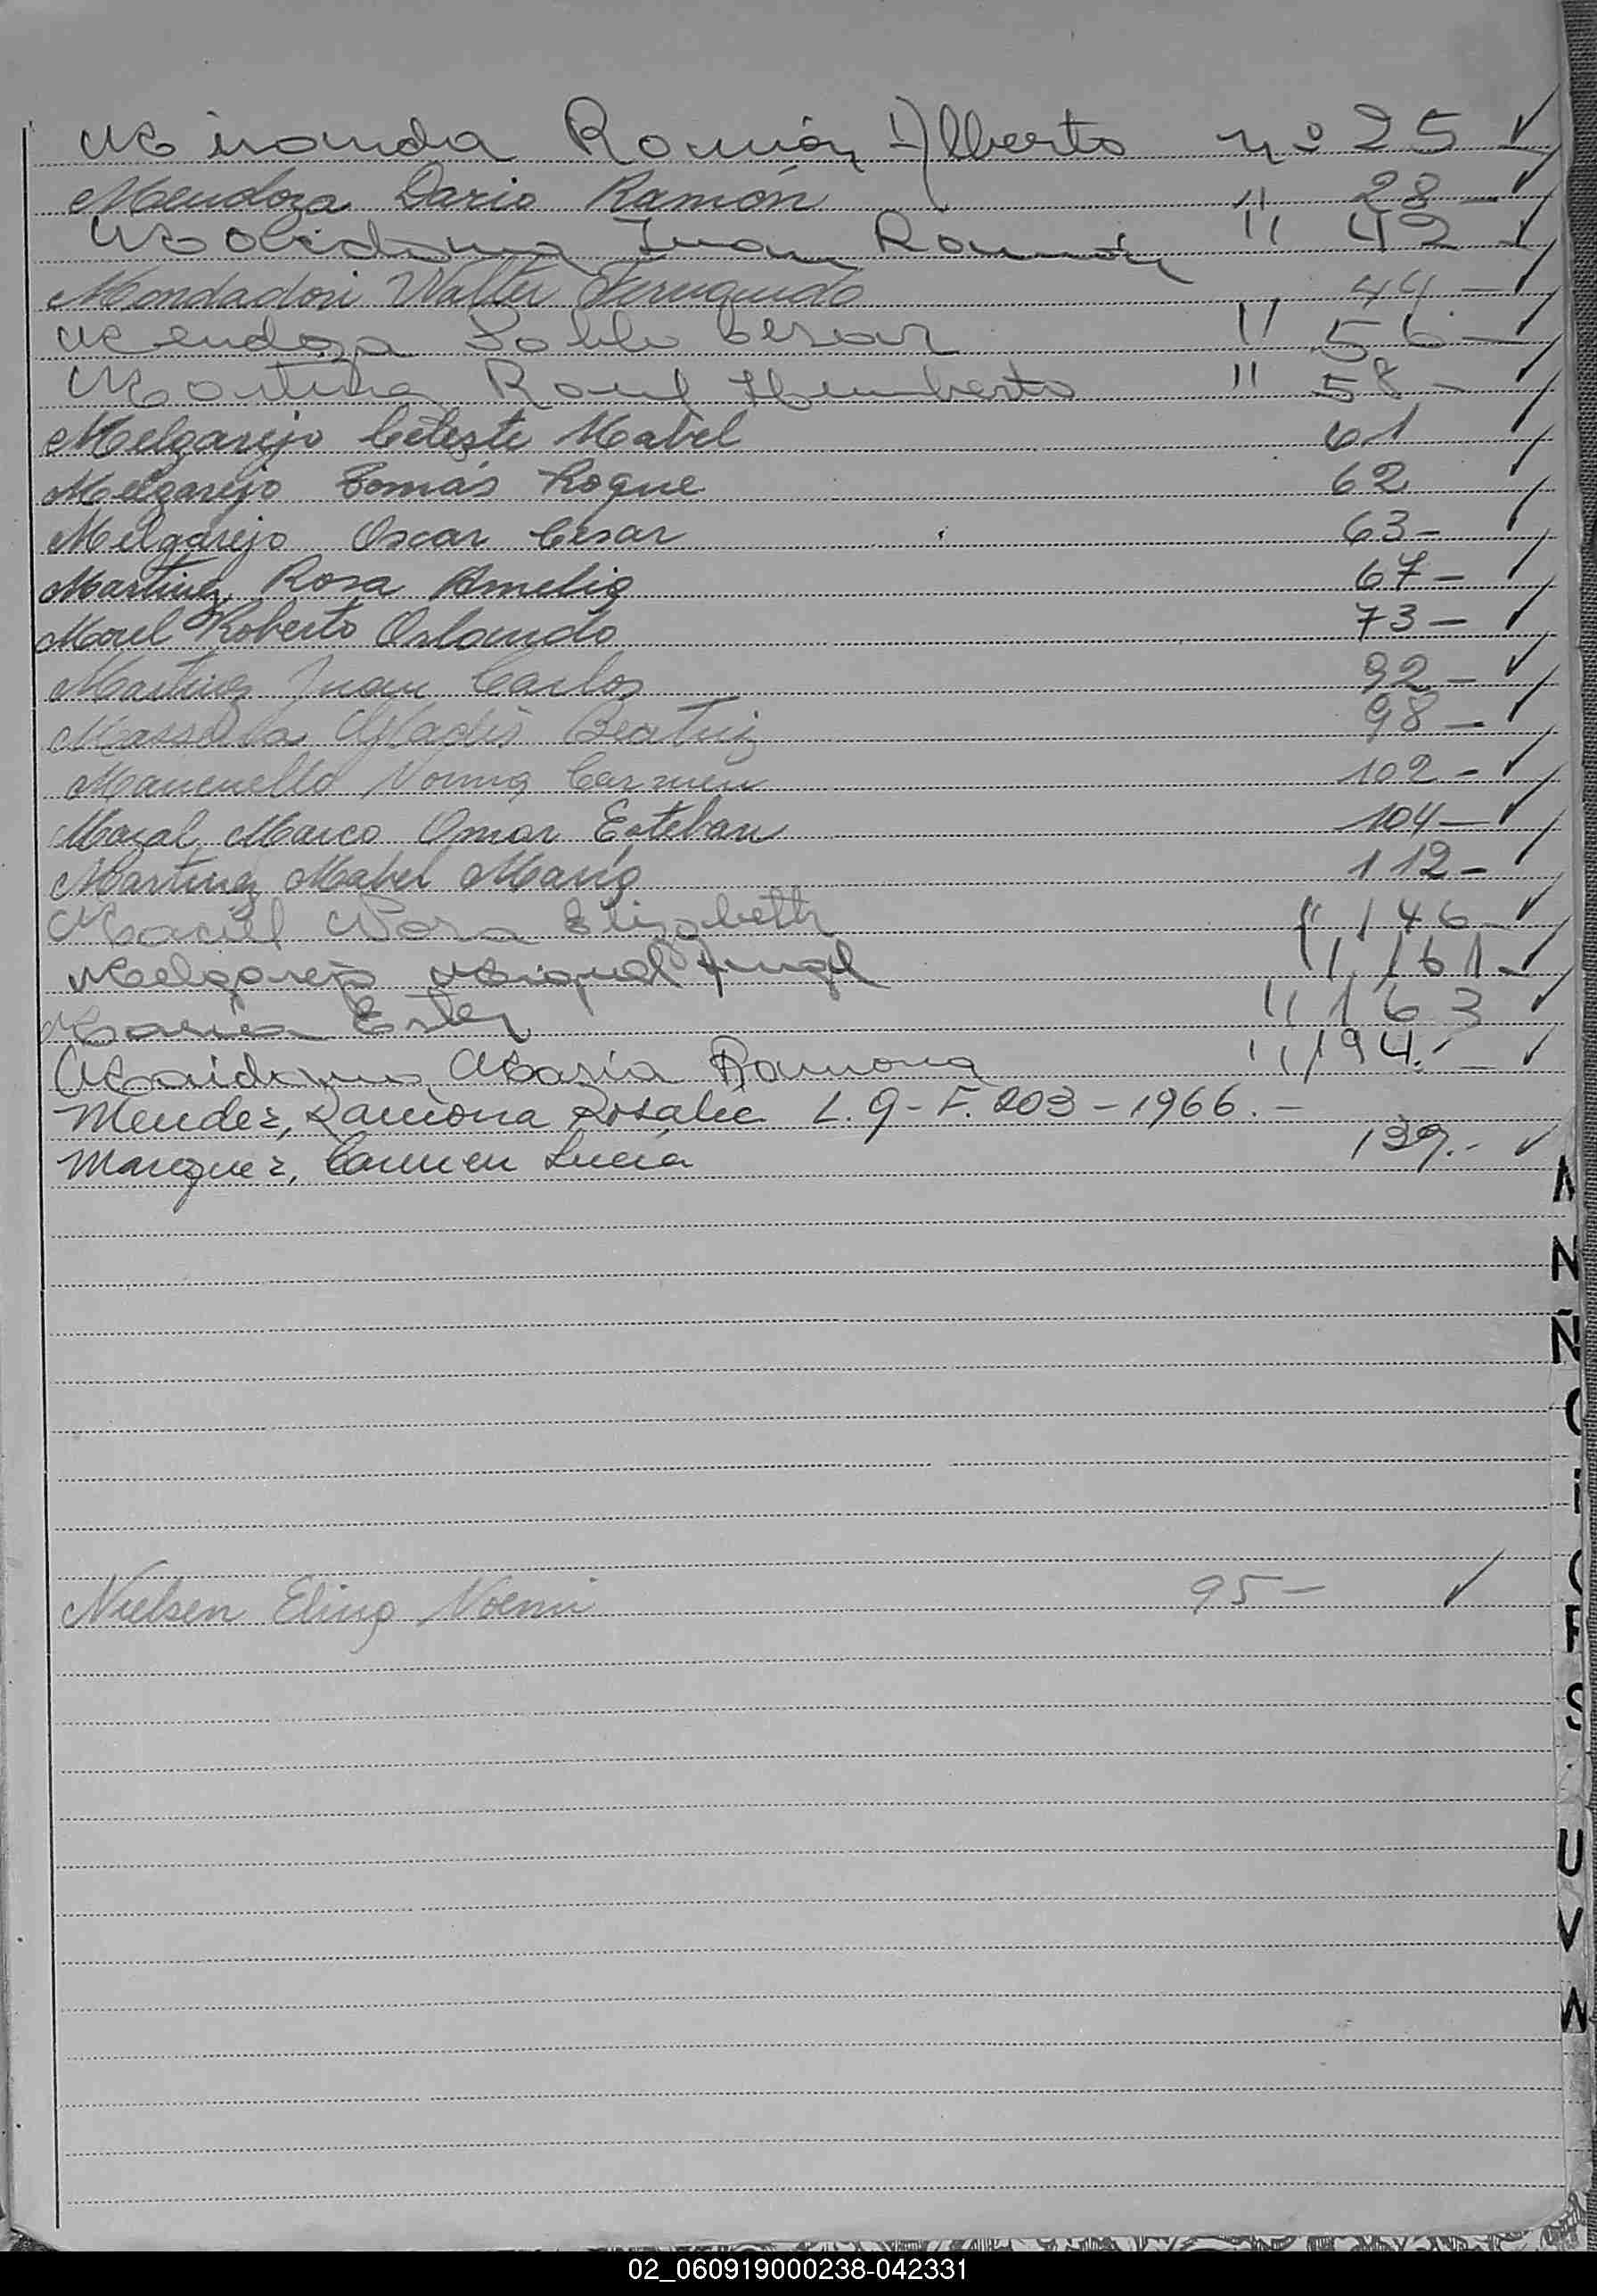 Miranda Ramón Alberto nº 25 ✓
Mendoza Dario Ramón " 28 - ✓
Maidana Juan Ramón " 42 - ✓
Mondadori Walter 44 - ✓
Mendoza Pablo Cesar " 56 - ✓
Martinez Raul Humberto " 58 - ✓
Melgarejo Celeste Mabel 61 ✓
Melgarejo Tomás Roque 62 ✓
Melgarejo Oscar Cesar 63 - ✓
Martinez, Rosa Amelia 67 - ✓
Morel Roberto Orlando 73 - ✓
Martinez Juan Carlos 92 - ✓
Gladis Beatriz 98 - ✓
Norma Carmen 102 - ✓
Marco Omar Esteban 104 - ✓
Martinez Mabel María 112 - ✓
Maciel Nora Elizabeth " 146 - ✓
Melgarejo Miguel Angel " 161 - ✓
Ester " 163 ✓
Maidana María Ramona " 194. - ✓
Mendez, Ramona Rosalie L. 9 - F. 203 - 1966. -
Marquez, Carmen Lucia 139. - ✓
N
Ñ
Nielsen Elina Noemi 95 - ✓
S
U
V
W
02_060919000238-042331